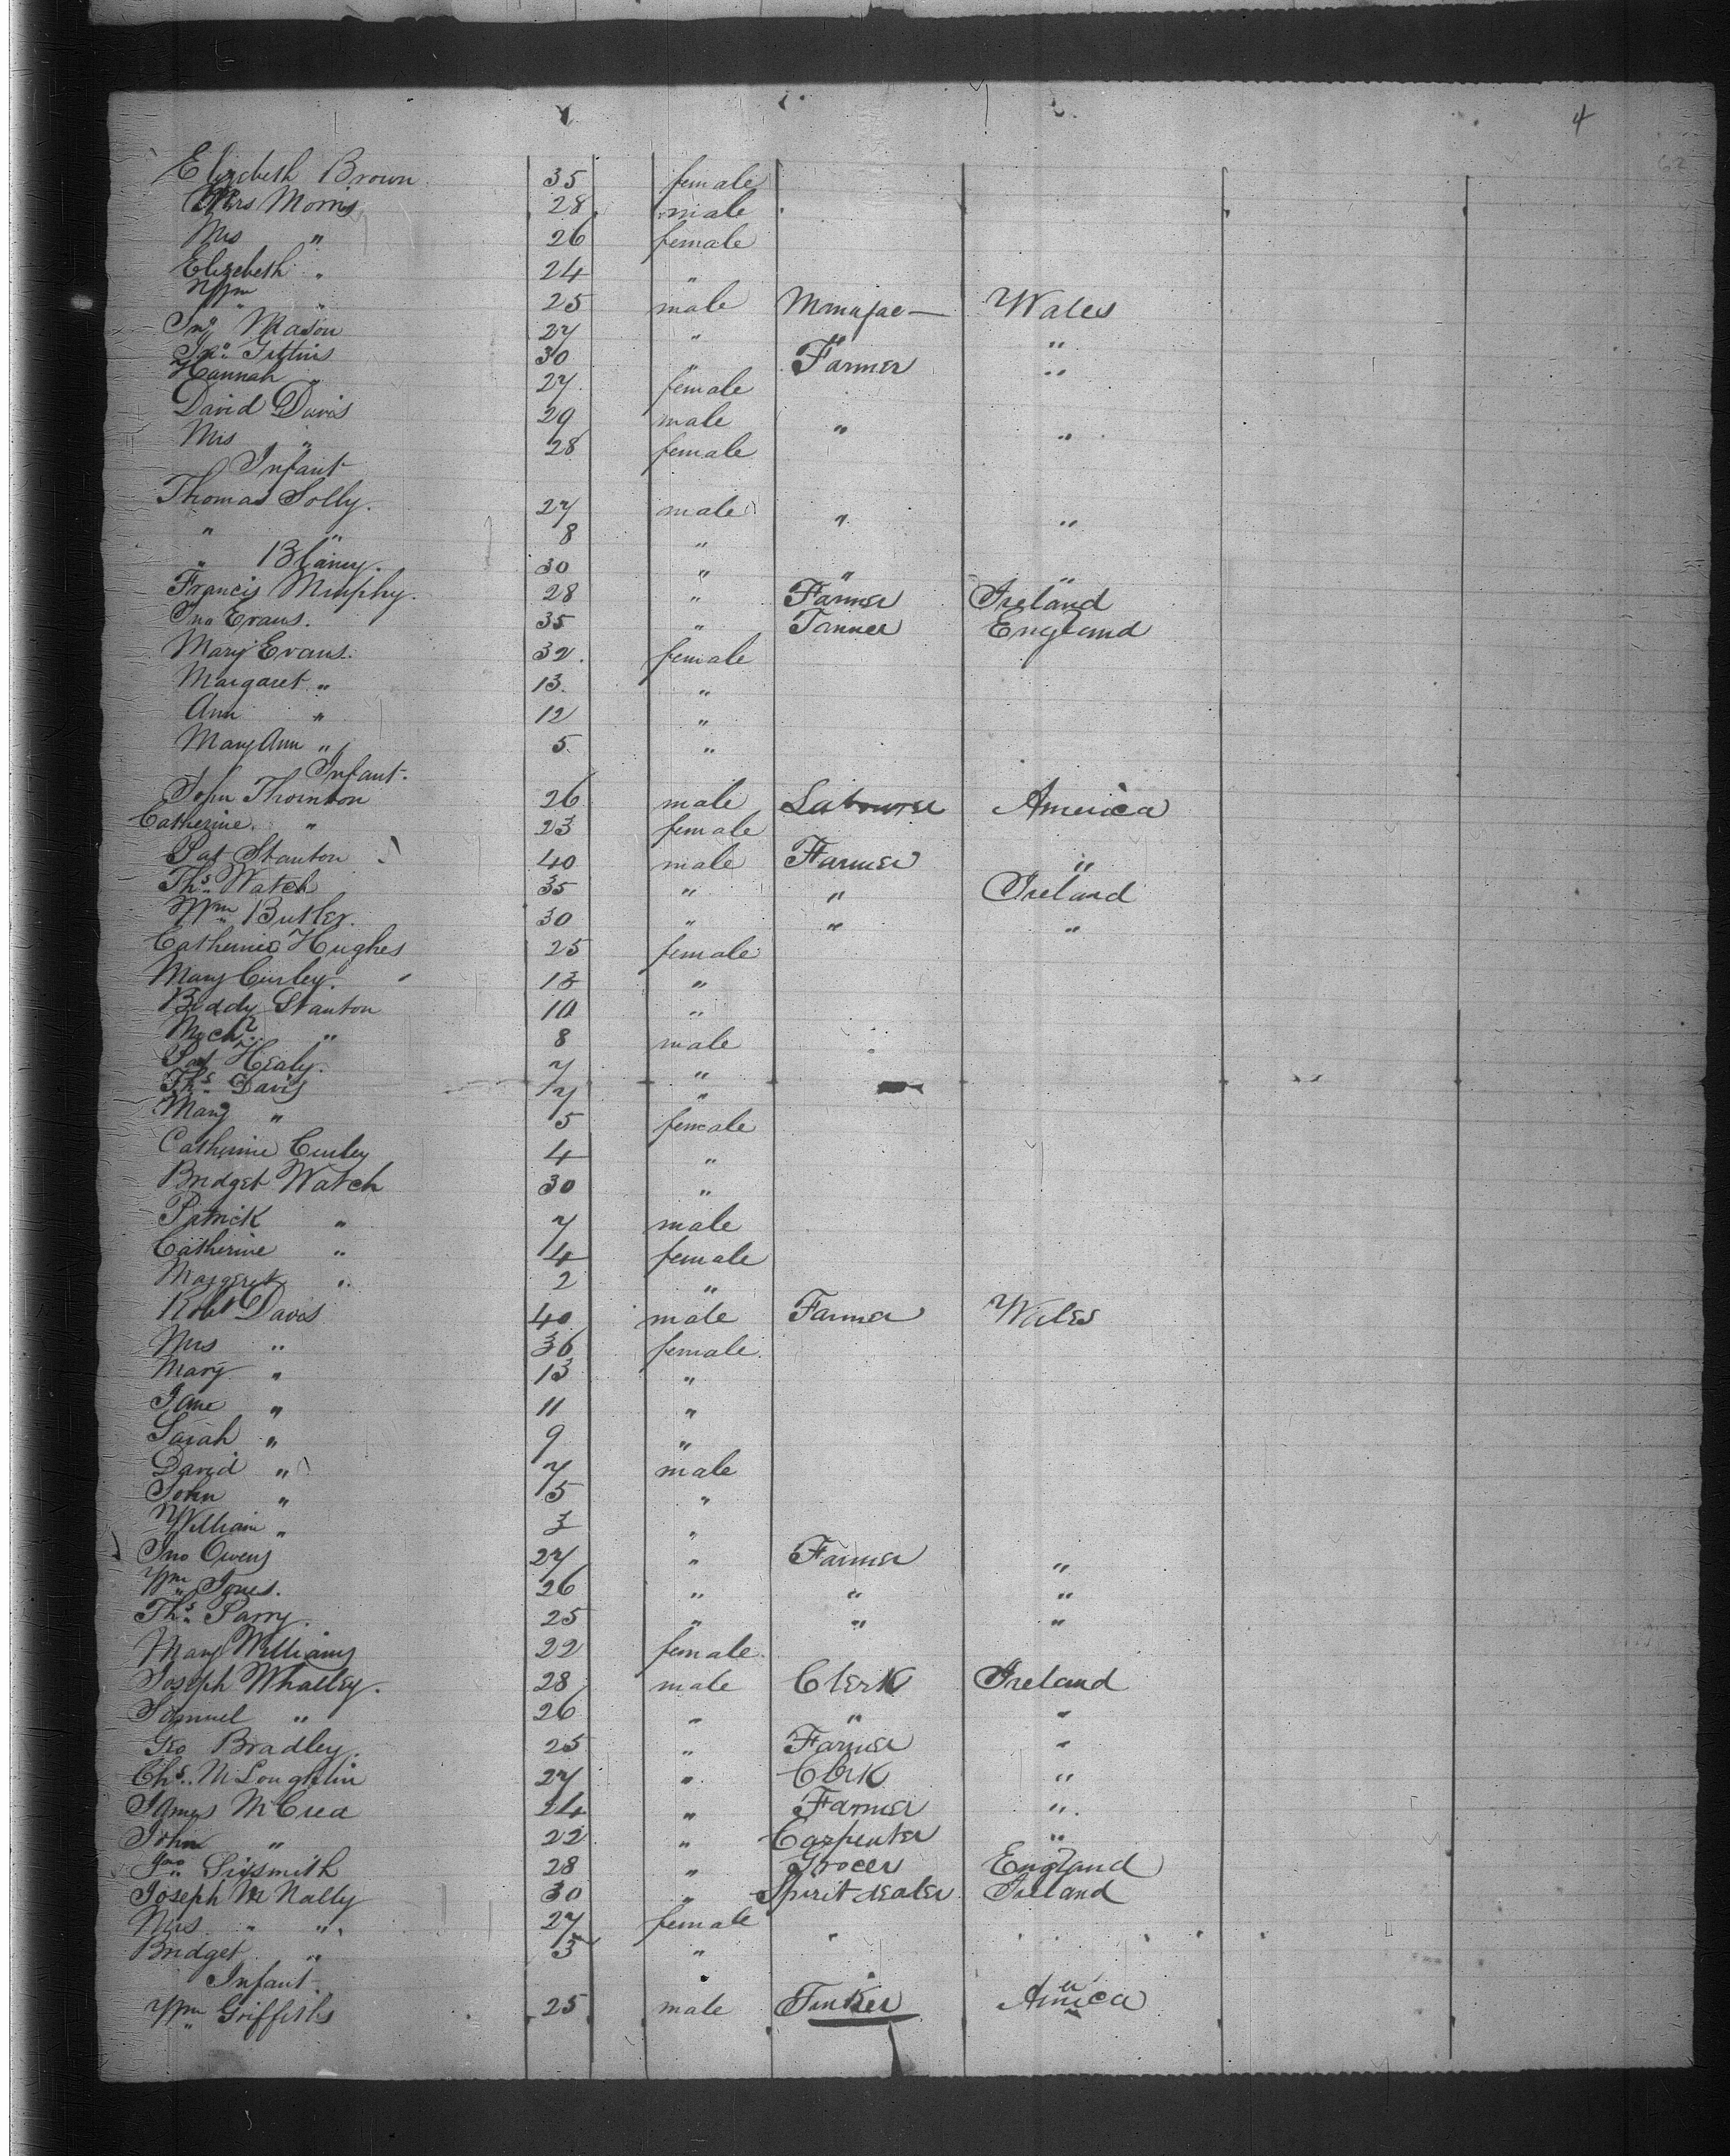 4
62
Elizebeth Brown 35 female
Mrs Morris 28 male
Mrs " 26 female
Elizebeth " 24 "
Wm " 25 male Manufac— Wales
Jno Mason 27 " " "
Jno. Gittins 30 " Farmer "
Hannah " 27 female
David Davis 29 male " "
Mrs " 28 female
Infant
Thomas Solly. 27 male " "
" " 8 "
" Blaney. 30 " " "
Francis Murphy. 28 " Farmer Ireland
Jno Evans. 35 " Tanner England
Mary Evans. 32. female
Margaret " 13. "
Ann " 12 "
Mary Ann " 5. "
Infant.
John Thornton 26 male Labourer America
Catherine. " 23 female
Pat Stanton 40 male Farmer "
Ths. Watch 35 " " Ireland
Wm Butler. 30 " " "
Catherine Hughes 25 female
Mary Curley. 13 "
Biddy Stanton 10 "
Michl. " 8 male
Pat Healy. 7 "
Ths. Davis 7 "
Mary " 5 female
Catherine Curley 4 "
Bridget Watch 30 "
Patrick " 7 male
Catherine " 4 female
Margeret " 2 "
Robt Davis 40 male Farmer Wales
Mrs " 36 female
Mary " 13 "
Jane " 11 "
Sarah " 9 "
David " 7 male
John " 5 "
William " 3 "
Jno Owens 27 " Farmer "
Wm Jones. 26 " " "
Ths. Parry. 25 " " "
Mary Williams 22 female
Joseph Whalley. 28 male Clerk Ireland
Samuel " 26 " " "
Geo Bradley. 25 " Farmer "
Chs. McLoughlin 27 " Clerk "
James McCrea 24 " Farmer "
John " 22 " Carpenter "
Jno. Sixsmith 28 " Grocer England
Joseph McNally 30 " Spirit dealer Ireland
Mrs " " 27 female
Bridget " 3 "
Infant
Wm Griffiths 25 male Tinker America